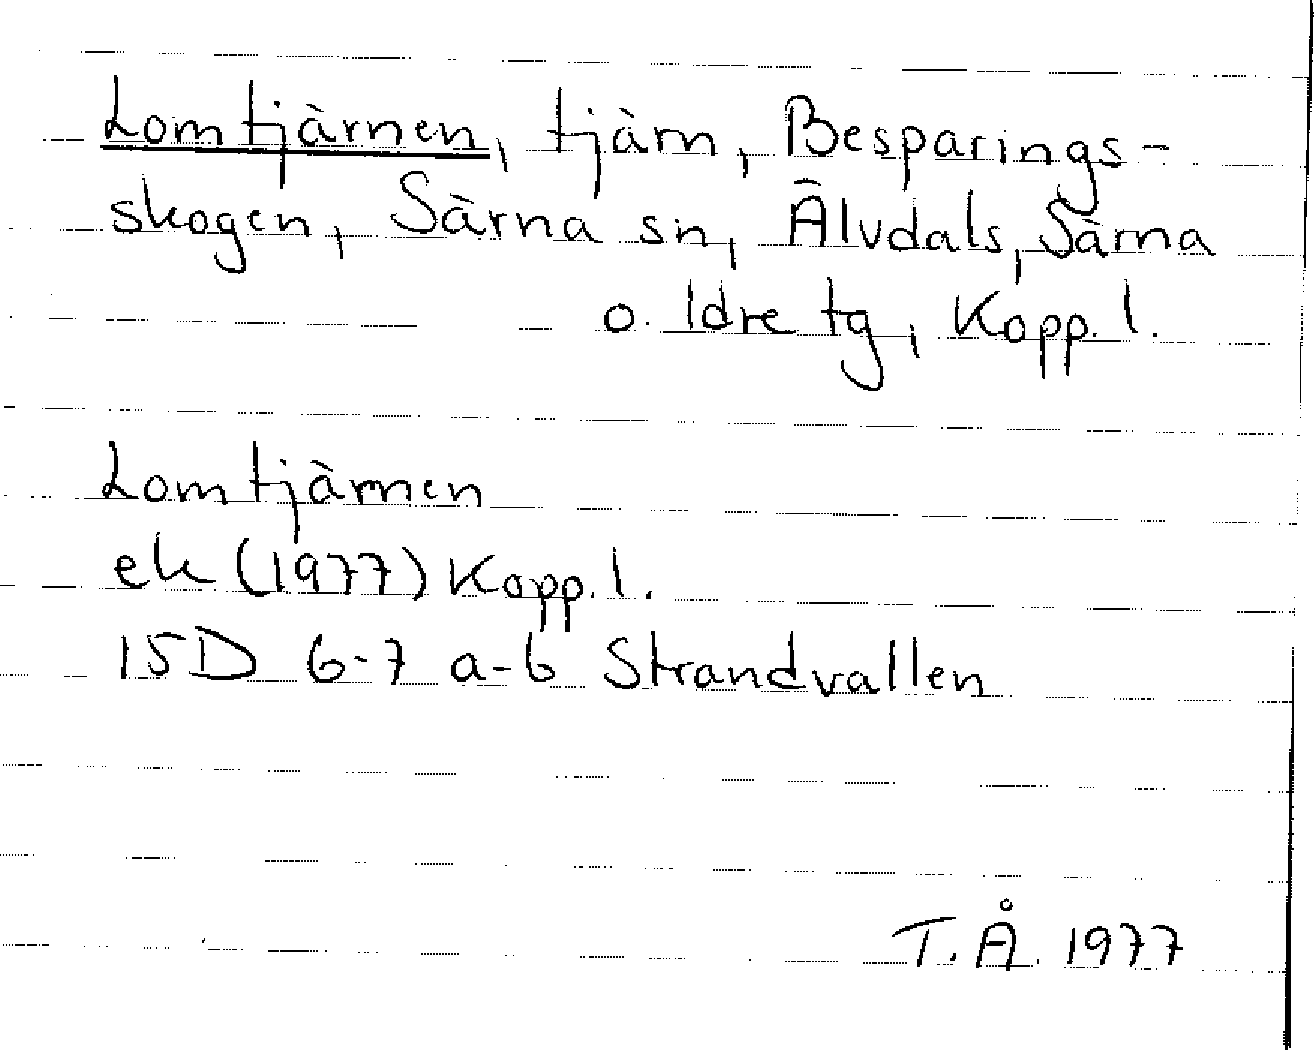 Lomtjärnen, tjärn, Besparings-
skogen, Särna sn, Älvdals, Särna
o. Idre tg, Kopp. l.
Lomtjärnen
ek (1977) Kopp. l.
15D 6-7 a-b Strandvallen
T. Å. 1977